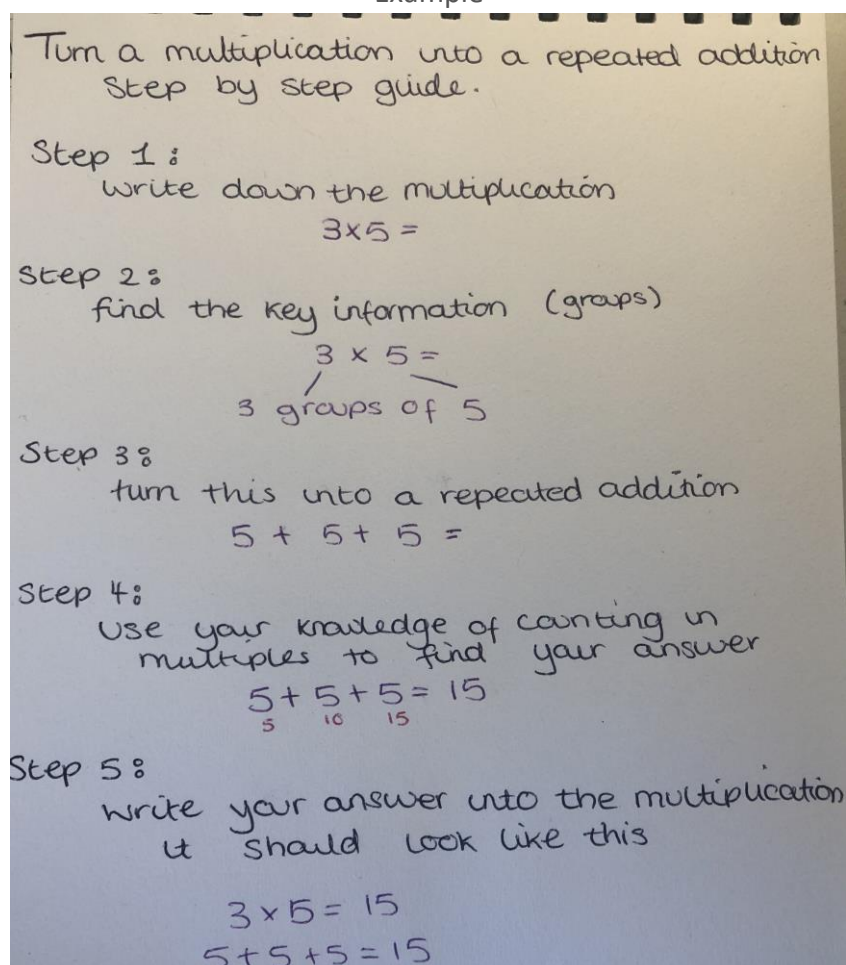 Example
Turn a multiplication into a repeated addition
Step by step guide.
Step 1:
write down the multiplication
3×5 =
Step 2:
find the key information (groups)
3 × 5 =
3 groups of 5
Step 3:
turn this into a repeated addition
5 + 5 + 5 =
Step 4:
Use your knowledge of counting in
multiples to find your answer
5 + 5 + 5 = 15
5 10 15
Step 5:
Write your answer into the multiplication
it should look like this
3 × 5 = 15
5 + 5 + 5 = 15